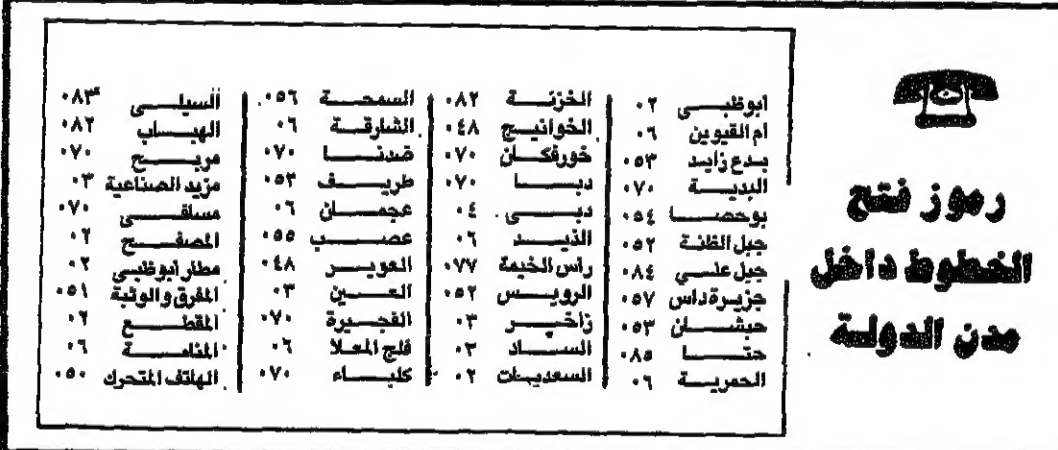 رموز فتح
الخطوط داخل
مدن الدولة
ابوظبـي ٠٢
ام القيوين ٠٦
بدع زايد ٠٥٣
البدية ٠٧٠
بوحصا ٠٥٤
جبل الظنة ٠٥٢
جبل علي ٠٨٤
جزيرة داس ٠٥٧
حبشان ٠٥٣
حتا ٠٨٥
الحمرية ٠٦
الخزنة ٠٨٢
الخوانيج ٠٤٨
خورفكان ٠٧٠
دبا ٠٧٠
دبى ٠٤
الذيد ٠٦
راس الخيمة ٠٧٧
الرويس ٠٥٢
زاخر ٠٣
الساد ٠٣
السعديات ٠٢
السمحة ٠٥٦
الشارقة ٠٦
ضدنا ٠٧٠
طريف ٠٥٣
عجمان ٠٦
عصب ٠٥٥
العوير ٠٤٨
العين ٠٣
الفجيرة ٠٧٠
فلج المعلا ٠٦
كلباء ٠٧٠
السيلى ٠٨٣
الهباب ٠٨٢
مربح ٠٧٠
مزيد الصناعية ٠٣
مسافى ٠٧٠
المصفح ٠٢
مطار ابوظبى ٠٢
المفرق والوثبة ٠٥١
المقطع ٠٢
المنامة ٠٦
الهاتف المتحرك ٠٥٠